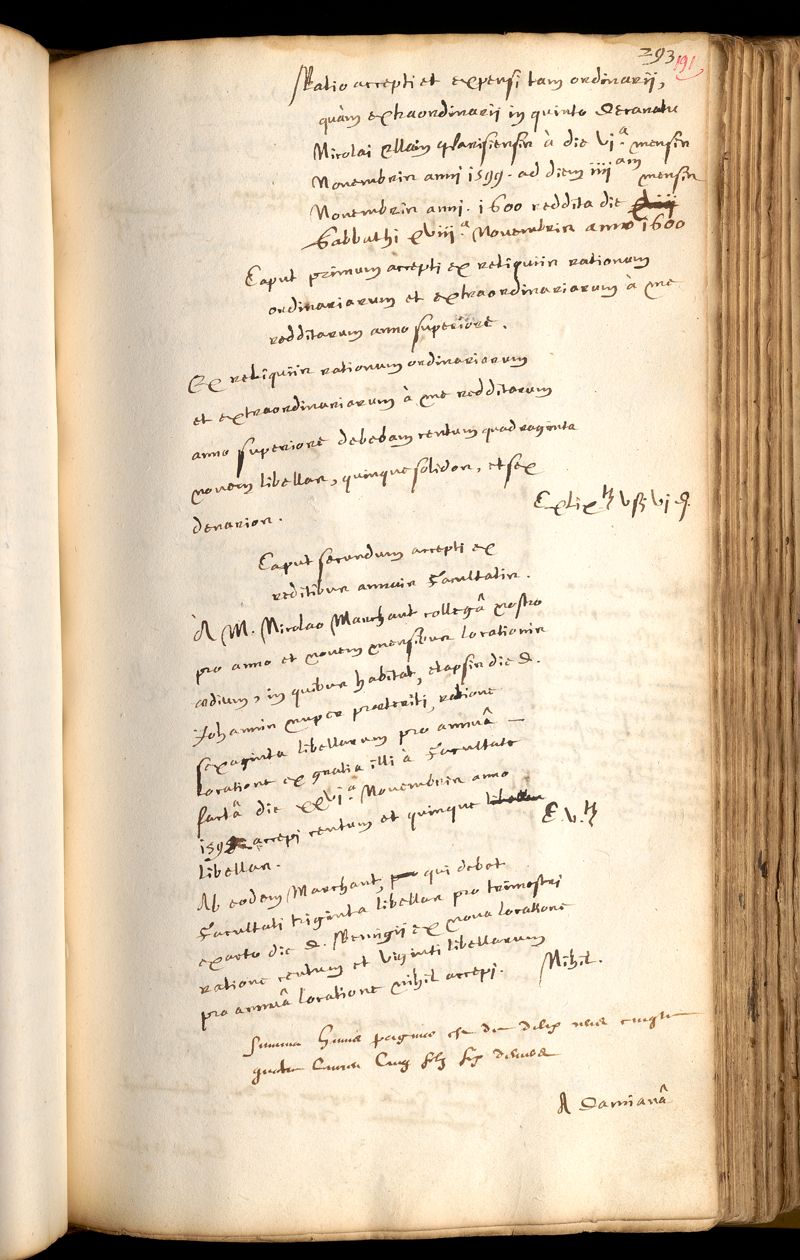 293
191
Ratio accepti et expensi tam ordinarii,
quàm extraordinarii in quinto Decanatu
Nicolai Ellain Parisiensis à die vi.ª mensis
Novembris anni 1599. ad diem iiii am mensis
Novembris anni. 1600 reddita die xviii
Sabbathi xviii.ª Novembris anno 1600
Caput primum accepti ex reliquiis rationum
ordinariarum et extraordinariarum à me
redditarum anno superiore.
Ex reliquiis rationum ordinariarum
et extraordinariarum à me redditarum
anno superiore debebam centum quadraginta
novem libellas, quinque solidos, et sex
denarios.
Cxlix lt v ß vi d.
Caput secundum accepti ex
reditibus annuis Facultatis.
A M. Nicolao Marchant collegâ nostro
pro anno et novem mensibus locationis
ædium, in quibus habitat, elapsis die S.
Johannis nuper præteriti, ratione
sexaginta libellarum pro annuâ
locatione ex gratia illi à Facultate
factâ die xxvi.ª Novembris anno
accepi centum et quinque libellas
libellas.
C.v. lt
Ab eodem Marchant, qui debet
Facultati triginta libellas pro trimestri
exacto die S. Remigii ex nova locatione
ratione centum et viginti libellarum
pro annuâ locatione nihil accepi.
Nihil.
Summa huius paginae est de
quatre livres cinq solz six deniers
A Damianâ